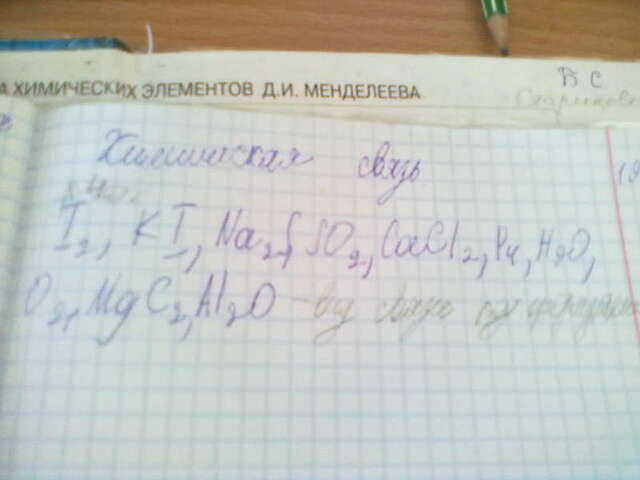 А ХИМИЧЕСКИХ ЭЛЕМЕНТОВ Д.И. МЕНДЕЛЕЕВА
В С
Химическая связь
I₂, KI, Na₂S, SO₂, CaCl₂, P₄, H₂O,
O₂, MgC₂, Al₂O - вид связи